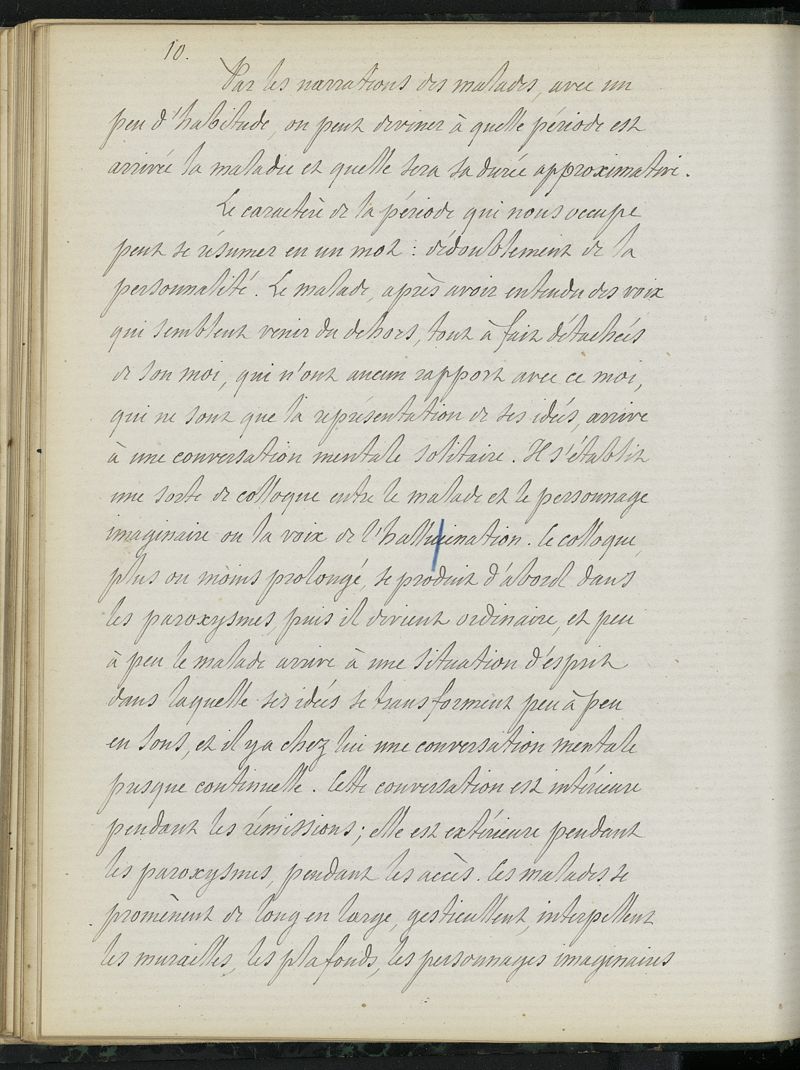 10.
Par les narrations des malades, avec un
peu d'habitude, on peut deviner à quelle période est
arrivée la maladie et quelle sera sa durée approximative.
Le caractère de la période qui nous occupe
peut se résumer en un mot : dédoublement de la
personnalité. Le malade, après avoir entendu des voix
qui semblent venir du dehors, tout à fait détachées
de son moi, qui n'ont aucun rapport avec ce moi,
qui ne sont que la représentation de ses idées, arrive
à une conversation mentale solitaire. Il s'établit
une sorte de colloque entre le malade et le personnage
imaginaire ou la voix de l'hallucination. Ce colloque,
plus ou moins prolongé, se produit d'abord dans
les paroxysmes, puis il devient ordinaire, et peu
à peu le malade arrive à une situation d'esprit
dans laquelle ses idées se transforment peu à peu
en sons, et il y a chez lui une conversation mentale
presque continuelle. Cette conversation est intérieure
pendant les rémissions ; elle est extérieure pendant
les paroxysmes, pendant les accès. Ces malades se
promènent de long en large, gesticulent, interpellent
les murailles, les plafonds, les personnages imaginaires